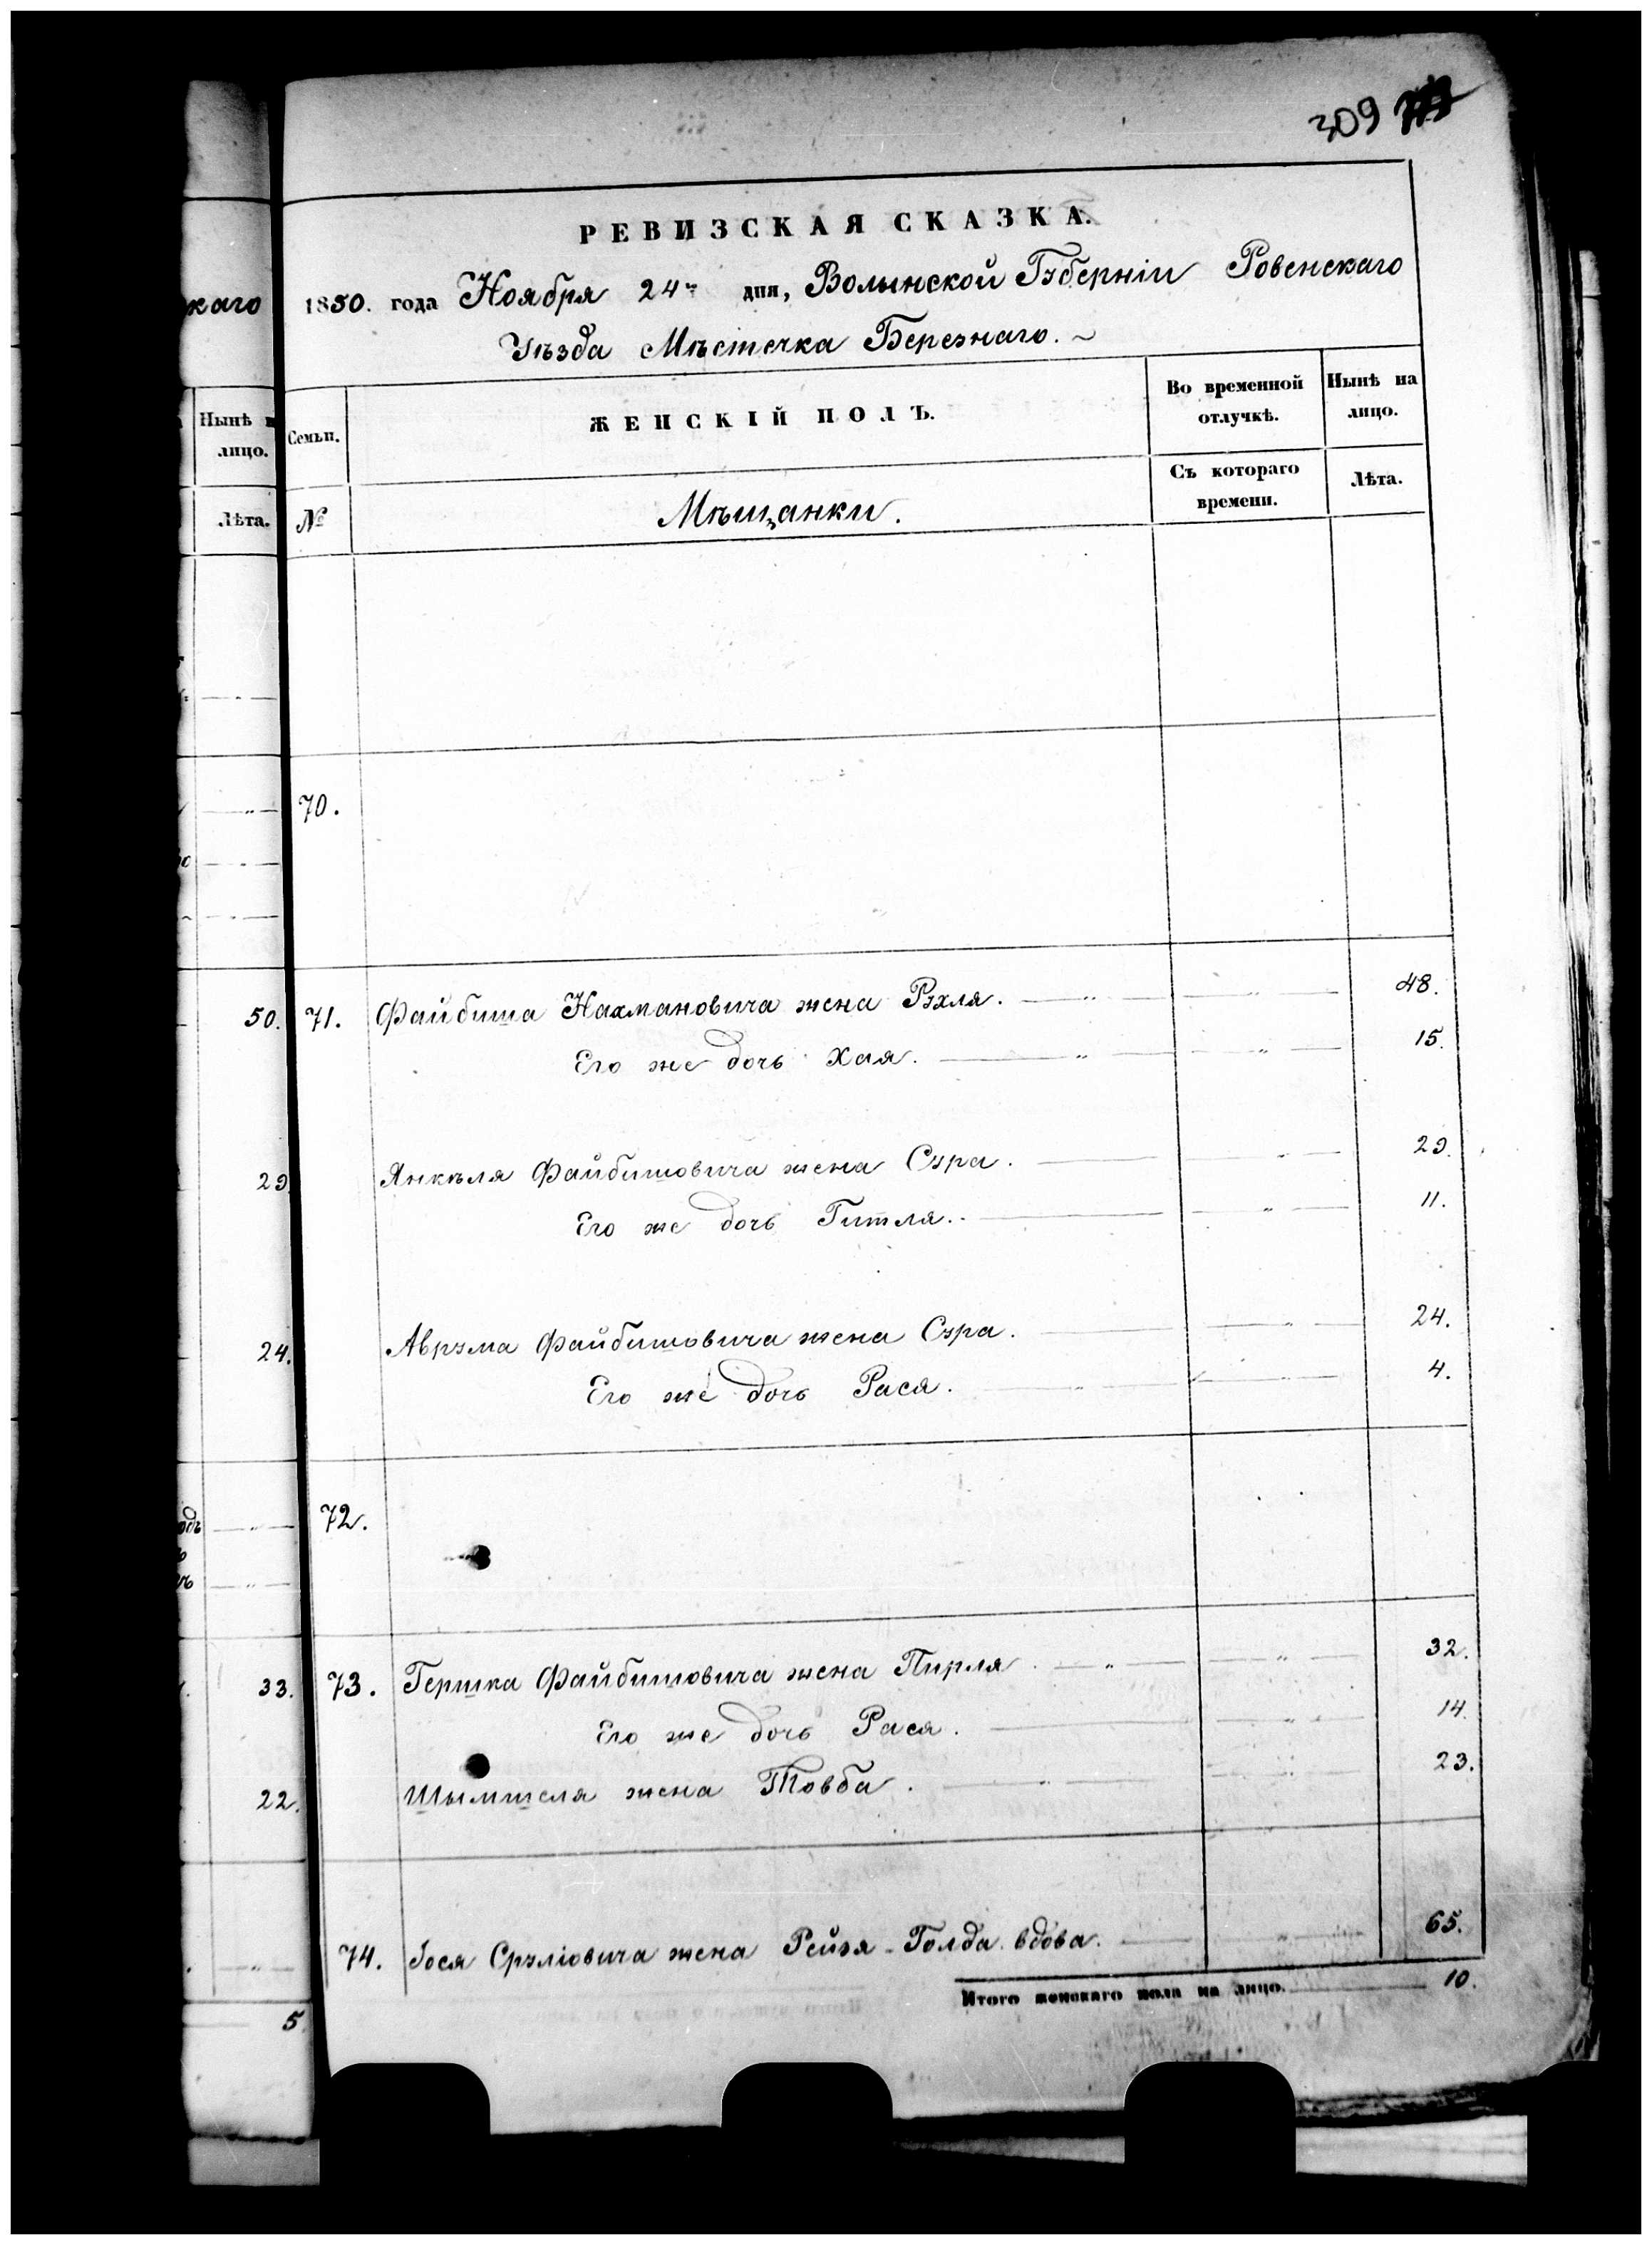 309
РЕВИЗСКАЯ СКАЗКА.
каго
1850. года Ноября 24го дня, Волынской Губерніи Ровенскаго
Уѣзда Мѣстечка Березнаго.
Нынѣ
лицо.
Лѣта.
Семьи.
№
ЖЕНСКІЙ ПОЛЪ.
Мѣщанки.
Во временной
отлучкѣ.
Съ котораго
времени.
Нынѣ на
лицо.
Лѣта.
70.
50. 71. Файбиша Нахмановича жена Рухля. — " — — " — 48.
Его же дочь Хая. — " — — " — 15.
29 Янкѣля Файбишовича жена Сура. — — " — 29.
Его же дочь Гитля. — — " — 11.
24. Аврума Файбишовича жена Сура. — — " — 24.
Его же дочь Рася. — " — — " — 4.
72.
33. 73. Гершка Файбишовича жена Пирля. — " — — " — 32.
Его же дочь Рася. — — " — 14.
22. Шымшеля жена Товба. — " — — " — 23.
74. Іося Cруліовича жена Рейзя-Голда вдова. — — " — 65.
Итого женскаго пола на лицо. — 10.
5